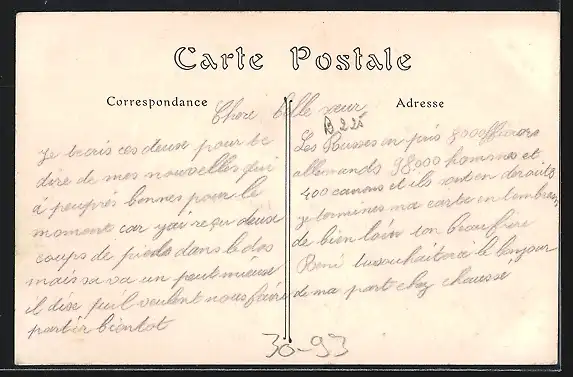 Carte Postale
Correspondance
Adresse
Chere Belle sœur
B 225
Je tecris ces deuse pour te
dire de mes nouvelles qui
à peuprés bonnes pour le
moment car j'ai reçu deuse
coups de pieds dans le dos
mais sa va un peut mieuse
il dise qu'il veulent nous faire
partir bientot
Les Russes on pris 8000 officiers
allemands 98.000 hommes et
400 canons et ils sont en deroute
je termines ma carte en
de bien loin ton beaufrère
René tu souhaitera le bonjour
de ma part chez chausse
30-93